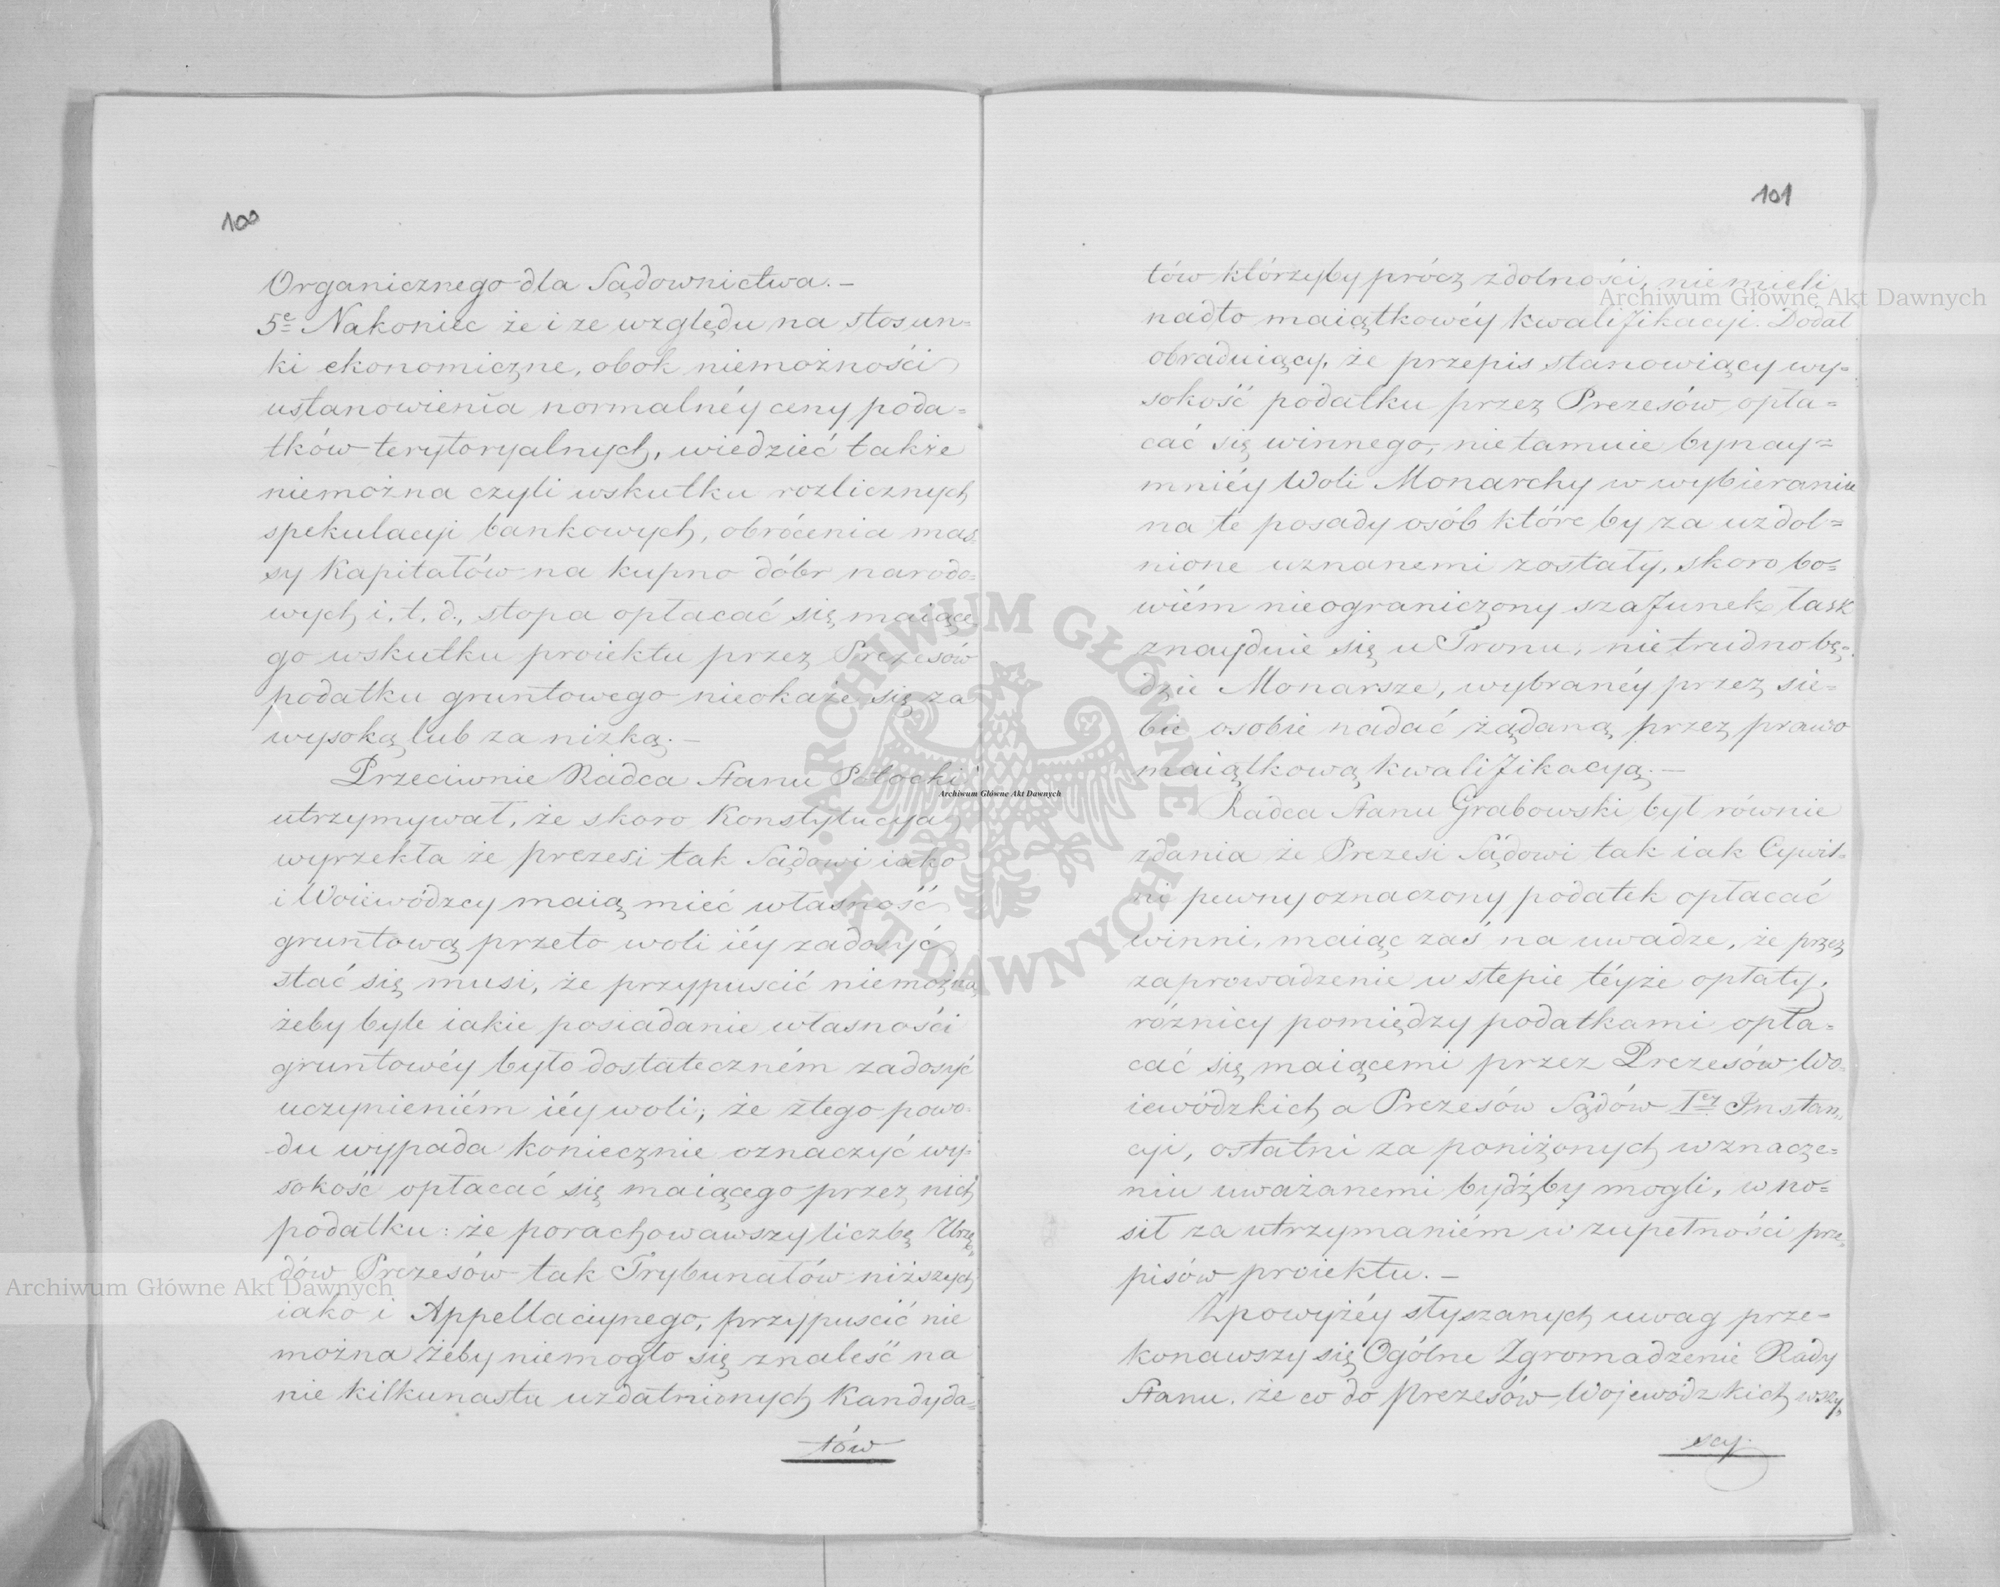 100
Organicznego dla Sądownictwa. —
5e Nakoniec że i ze względu na stosun=
ki ekonomiczne, obok niemożności
ustanowienia normalnéy ceny poda=
tków terytoryalnych, wiedzieć także
niemożna czyli wskutku rozlicznych
spekulacyi bankowych, obrócenia mas=
sy Kapitałów na kupno dóbr narodo=
wych i. t. d., stopa opłacać się maiące=
go wskutku proiektu przez Prezesów
podatku gruntowego nieokaże się za
wysoką lub za nizką. —
Przeciwnie Radca Stanu Potocki
utrzymywał, że skoro Konstytucya
wyrzekła że prezesi tak Sądowi iako
i Woiewódzcy maią mieć własność
gruntową przeto woli iéy zadosyć
stać się musi, że przypuscić niemożna
żeby byle iakie posiadanie własności
gruntowéy było dostateczném zadosyć
uczynieniém iéy woli; że ztego powo=
du wypada koniecznie oznaczyć wy=
sokość opłacać się maiącego przez nich
podatku: że porachowawszy liczbę Urzę=
dów Prezesów tak Trybunałów niższych
iako i Appellacyinego, przypuscić nie
można żeby niemogło się znaleść na
nie kilkunastu uzdatnionych Kandyda=
tów
101
tów którzyby prócz zdolności, niemieli
nadto maiątkowéy kwalifikacyi. Dodał
obraduiący, że przepis stanowiący wy=
sokość podatku przez Prezesów opła=
cać się winnego, nietamuie bynay=
mniéy Woli Monarchy w wybieraniu
na te posady osób które by za uzdol=
nione uznanemi zostały, skoro bo=
wiém nieograniczony szafunek łask
znayduie się u Tronu, nietrudno bę=
dzie Monarsze, wybranéy przez sie=
bie osobie nadać żądaną przez prawo
maiątkową kwalifikacyą. —
Radca Stanu Grabowski był równie
zdania że Prezesi Sądowi tak iak Cywil=
ni pewny oznaczony podatek opłacać
winni, maiąc zaś na uwadze, że przez
zaprowadzenie w stepie téyże opłaty,
różnicy pomiędzy podatkami opła=
cać się maiącemi przez Prezesów Wo=
iewódzkich a Prezesów Sądów Iej Instan=
cyi, ostatni za poniżonych w znacze=
niu uważanemi bydźby mogli, wno=
sił za utrzymaniém w zupełności prze=
pisów proiektu. —
Zpowyżéy słyszanych uwag prze=
konawszy się Ogólne Zgromadzenie Rady
Stanu, że co do Prezesów Wojewódzkich wszy=
scy
Archiwum Główne Akt Dawnych
Archiwum Główne Akt Dawnych
Archiwum Główne Akt Dawnych
ARCHIWUM GŁÓWNE
AKT DAWNYCH